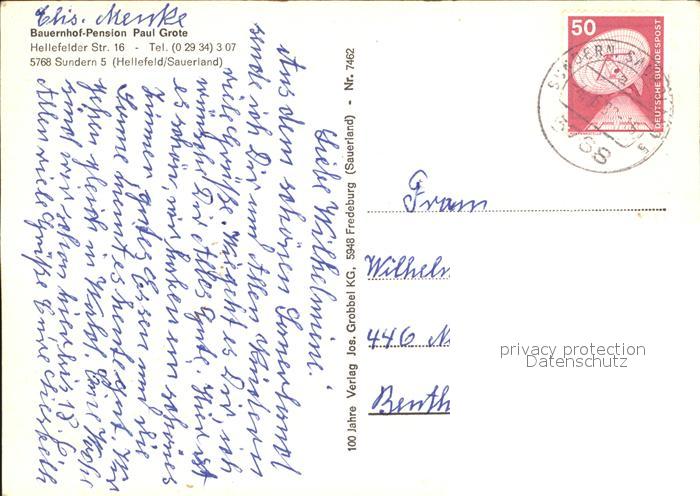 Elis. Menke
Bauernhof-Pension Paul Grote
Hellefelder Str. 16 - Tel. (0 29 34) 3 07
5768 Sundern 5 (Hellefeld/Sauerland)
Liebe Wilhelmine!
Aus dem schönen Sauerland
sende ich Dir und allen Kindern
viele Grüße. Wie geht es Dir, ich
wünsche Dir alles gute. Hier ist
es schön, wir haben ein schönes
Zimmer gutes Essen und die
Sonne meint es heute gut. Wir
gehen gleich in Wald. Eine Woche
sind wir schon hier bis 13. 6.
Allen viele Grüße Eure Elisabeth
100 Jahre Verlag Jos. Grobbel KG, 5948 Fredeburg (Sauerland) - Nr. 7462
50
DEUTSCHE BUNDESPOST
SUNDERN
Frau
Wilhelm
446 N
Benth
privacy protection
Datenschutz